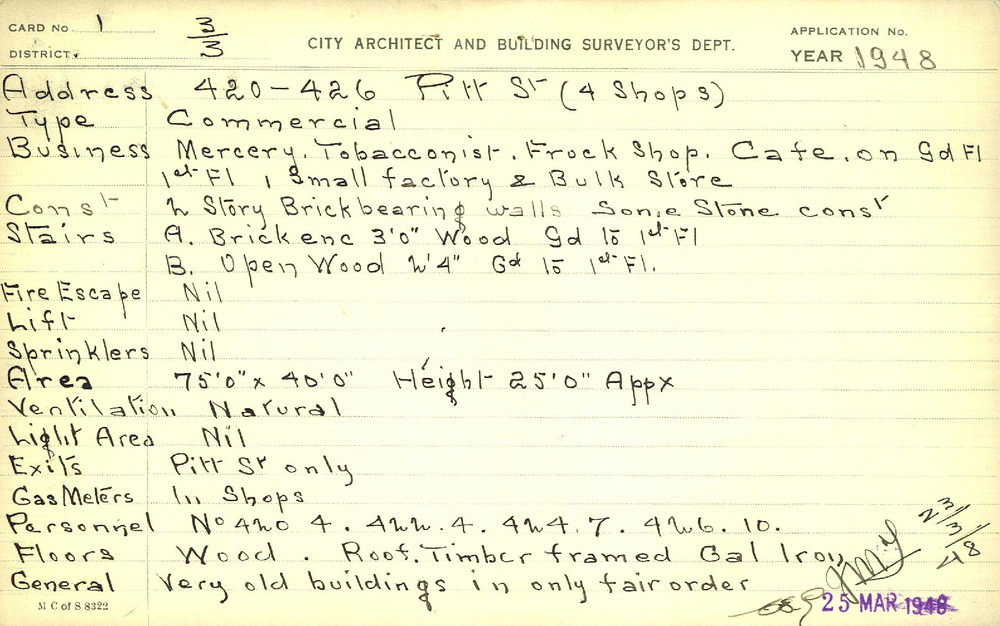 CARD No. 1
3/3
APPLICATION No.
DISTRICT.
CITY ARCHITECT AND BUILDING SURVEYOR'S DEPT.
YEAR 1948
Address 420-426 Pitt St (4 Shops)
Type Commercial
Business Mercery. Tobacconist. Frock Shop. Cafe. on Gd Fl
1st Fl 1 Small factory & Bulk Store
Const 2 Story Brick bearing walls Some Stone const
Stairs A. Brick enc 3'0" Wood Gd to 1st Fl
B. Open Wood 2'4" Gd to 1st Fl.
Fire Escape Nil
Lift Nil
Sprinklers Nil
Area 75'0" x 40'0" Height 25'0" Appx
Ventilation Natural
Light Area Nil
Exits Pitt St only
Gas Meters In Shops
Personnel No 420 4. 422. 4. 424. 7. 426. 10.
Floors Wood. Roof. Timber framed Gal Iron
General Very old buildings in only fair order
23/3/48
M C of S 8322
25 MAR 1948